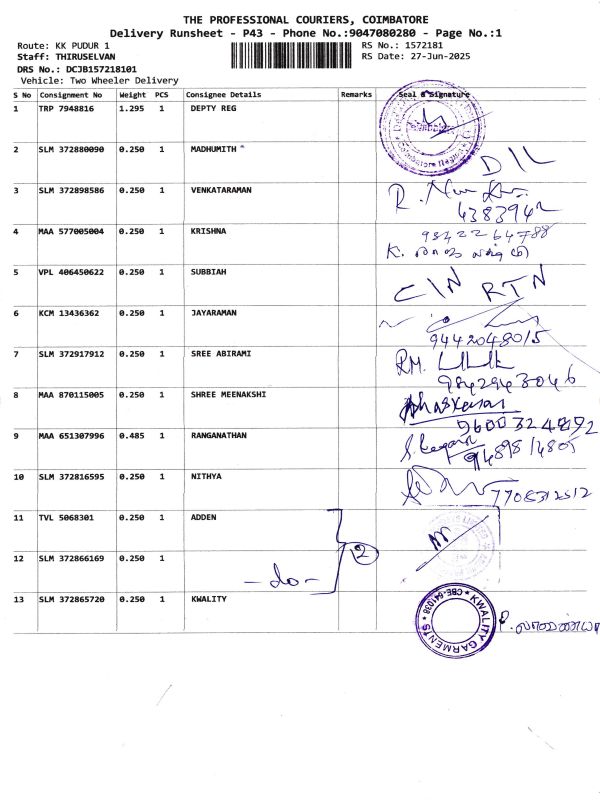 THE PROFESSIONAL COURIERS, COIMBATORE
Delivery Runsheet - P43 - Phone No.:9047080280 - Page No.:1
Route: KK PUDUR 1 RS No.: 1572181
Staff: THIRUSELVAN RS Date: 27-Jun-2025
DRS No.: DCJB157218101
Vehicle: Two Wheeler Delivery
S No Consignment No Weight PCS Consignee Details Remarks Seal & Signature
1 TRP 7948816 1.295 1 DEPTY REG
2 SLM 372880090 0.250 1 MADHUMITH DIL
3 SLM 372898586 0.250 1 VENKATARAMAN R.
4383942
4 MAA 577005004 0.250 1 KRISHNA 9842264788
K.
5 VPL 406450622 0.250 1 SUBBIAH CIN RTN
6 KCM 13436362 0.250 1 JAYARAMAN
9442048015
7 SLM 372917912 0.250 1 SREE ABIRAMI RM.
9842943046
8 MAA 870115005 0.250 1 SHREE MEENAKSHI Bhaskaran
9600324892
9 MAA 651307996 0.485 1 RANGANATHAN
9489814805
10 SLM 372816595 0.250 1 NITHYA
7708312512
11 TVL 5068301 0.250 1 ADDEN
2
12 SLM 372866169 0.250 1 -do-
13 SLM 372865720 0.250 1 KWALITY KWALITY GARMENTS CBE-641038